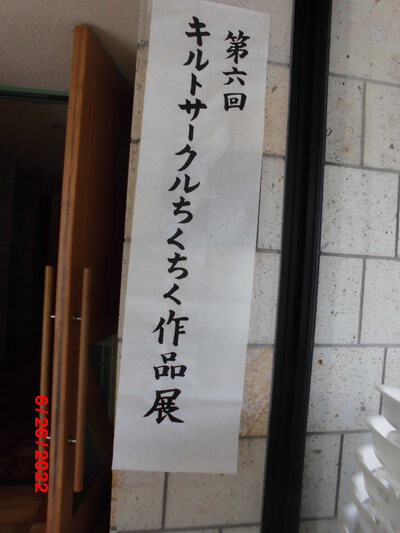 第六回
キルトサークルちくちく作品展
6/26/2022